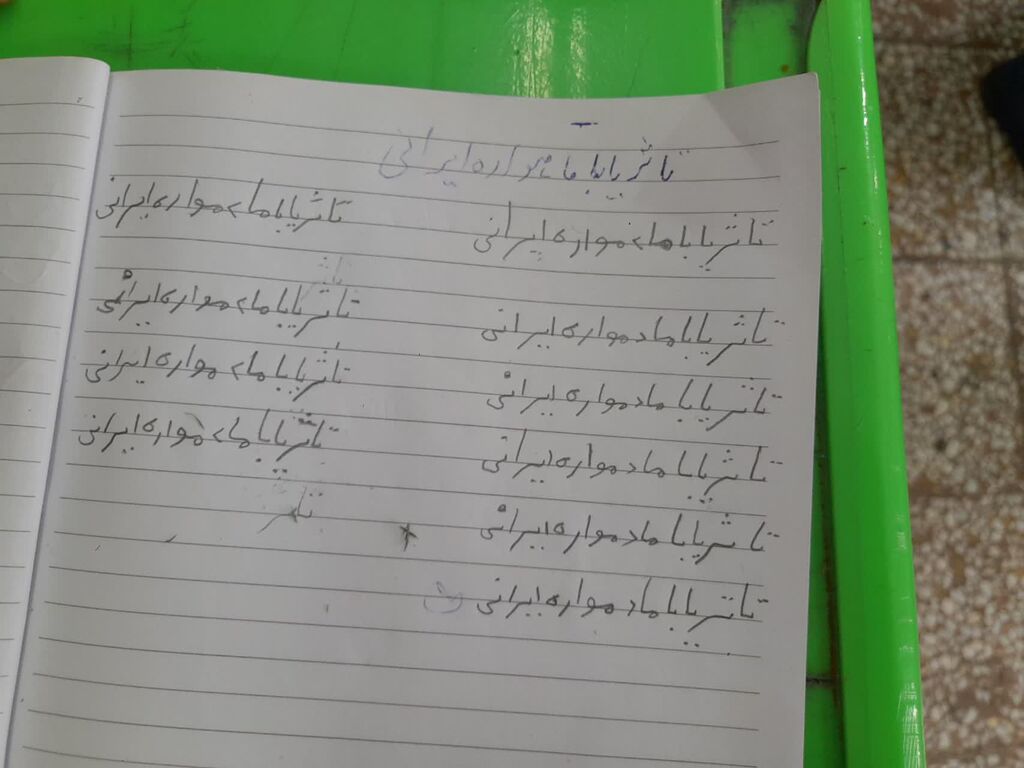 تا ثریا با ماهواره ایرانی
تا ثریا با ماهواره ایرانی
تا ثریا با ماهواره ایرانی
تا ثریا با ماهواره ایرانی
تا ثریا با ماهواره ایرانی
تا ثریا با ماهواره ایرانی
تا ثریا با ماهواره ایرانی
تا ثریا با ماهواره ایرانی
تا ثریا با ماهواره ایرانی
تا ثریا با ماهواره ایرانی
تا ثریا با ماهواره ایرانی